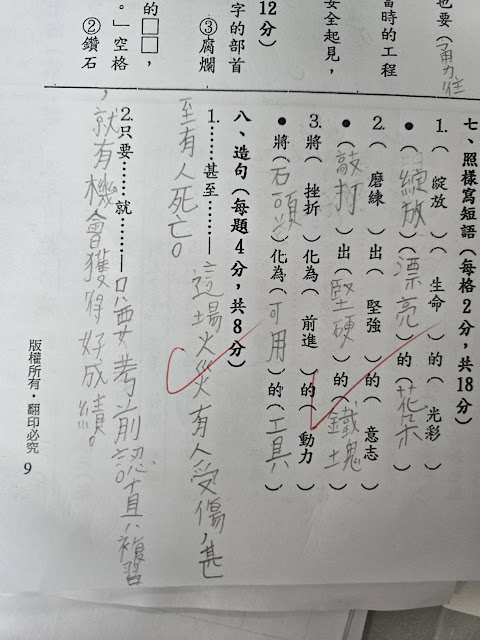 也要（勇力往
當時的工程
安全起見，
12分）
字的部首
③腐爛
的□□，
。」空格
②鑽石
七、照樣寫短語（每格2分，共18分）
1.（綻放）（生命）的（光彩）
●（綻放）（漂亮）的（花朵）
2.（磨練）出（堅強）的（意志）
●（敲打）出（堅硬）的（鐵塊）
3.將（挫折）化為（前進）的（動力）
●將（石頭）化為（可用）的（工具）
八、造句（每題4分，共8分）
1.……甚至……—這場火災有人受傷，甚
至有人死亡。
2.只要……就……—只要考前認真複習
，就有機會獲得好成績。
版權所有・翻印必究
9